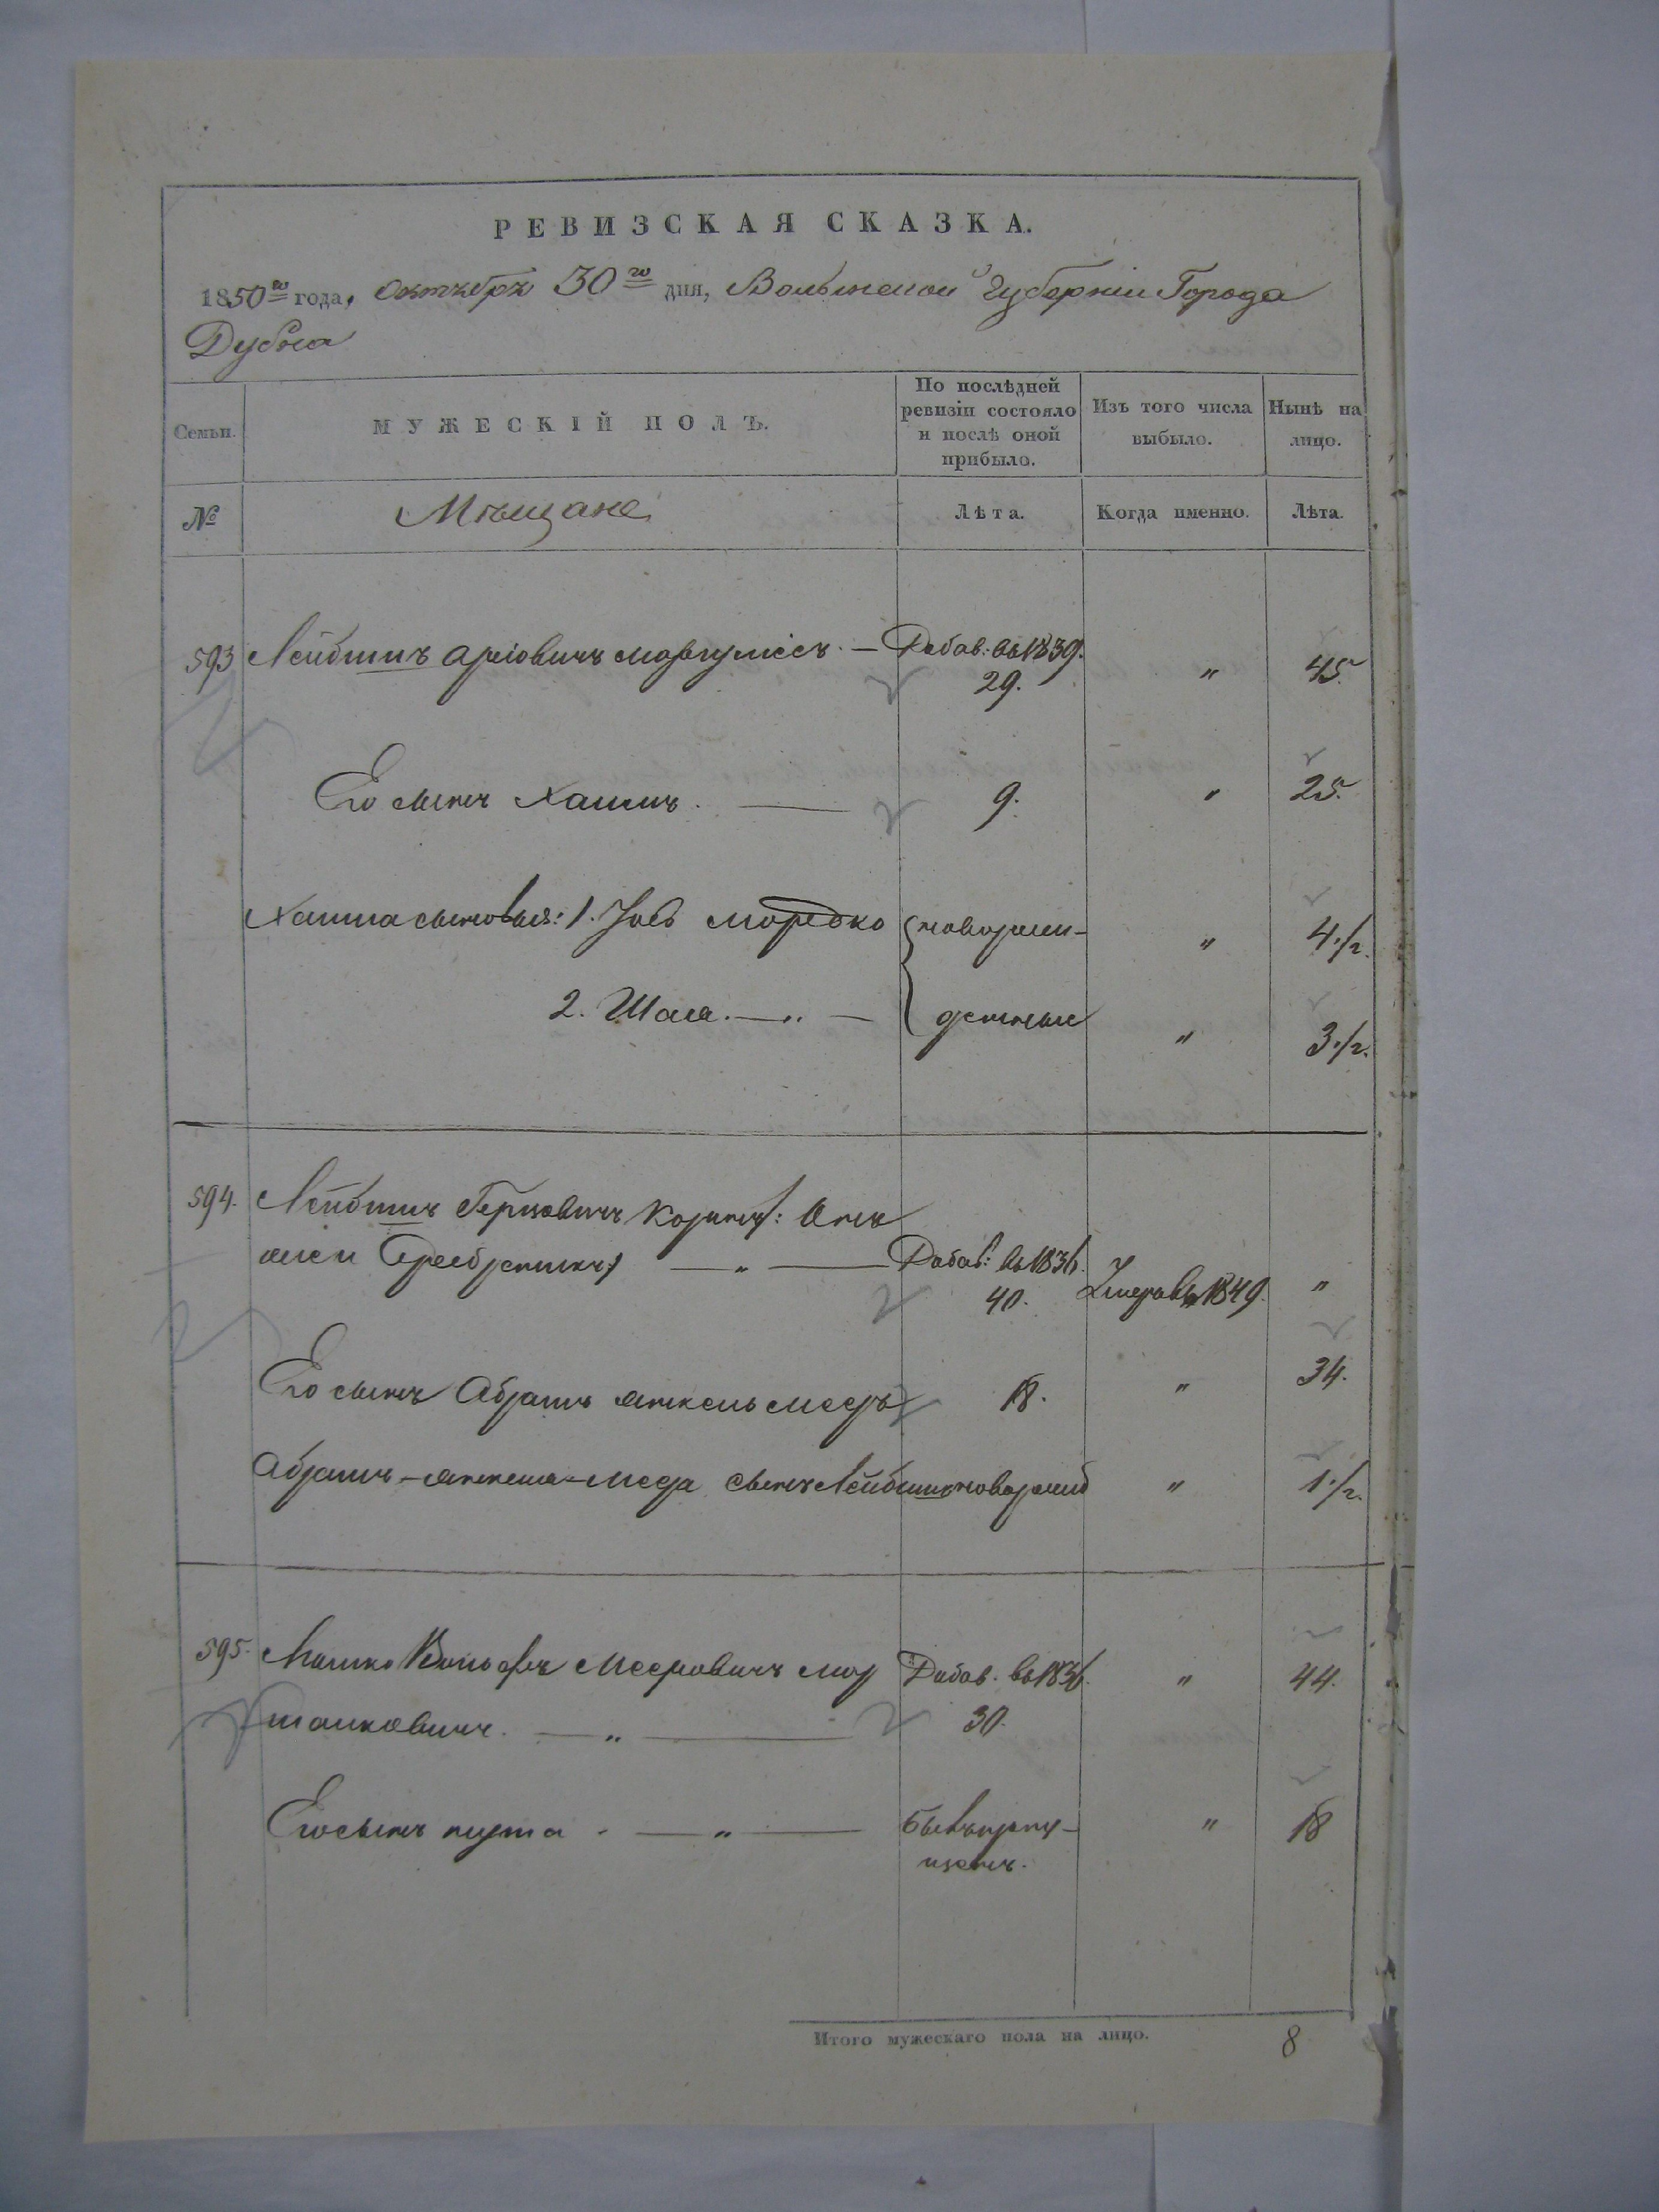 РЕВИЗСКАЯ СКАЗКА.
1850го года, Октября 30го дня, Волынской Губерніи Города
Дубна
Семьи.
МУЖЕСКІЙ ПОЛЪ.
По послѣдней
ревизіи состояло
и послѣ оной
прибыло.
Изъ того числа
выбыло.
Нынѣ на
лицо.
№
Мѣщане
Лѣта.
Когда именно.
Лѣта.
593 Лейбишъ Аріовичъ Маргулісъ. — Добав: въ 1839. " 45.
29.
Его сынъ Хаимъ. — 9. " 25.
Хаима сыновья: 1. Іосъ Мордко новорож- " 4 1/2.
2. Шая. — " — денные " 3 1/2.
594. Лейбишъ Герцовичъ
Добав: въ 1836.
40. Умеръ въ 1849. "
Его сынъ Абрамъ Янкель Мееръ 18. " 34.
Абрамъ-Янкеля-Меера сынъ Лейбишъ новорожд " 1 1/2.
595. Мошко Вольфъ Мееровичъ Мар Добав. въ 1836. " 44.
шалковичъ. — " — 30.
Его сынъ Нута. — " — Бывъ пропу- " 18
щенъ.
Итого мужескаго пола на лицо. 8